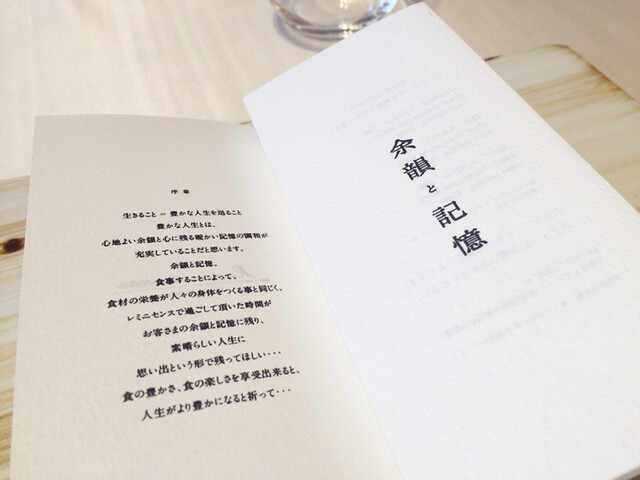 序章
生きること＝豊かな人生を送ること
豊かな人生とは、
心地よい余韻と心に残る暖かい記憶の調和が
充実していることだと思います。
余韻と記憶。
食事することによって、
食材の栄養が人々の身体をつくる事と同じく、
レミニセンスで過ごして頂いた時間が
お客さまの余韻と記憶に残り、
素晴らしい人生に
思い出という形で残ってほしい・・・
食の豊かさ、食の楽しさを享受出来ると、
人生がより豊かになると祈って・・・
余韻と記憶